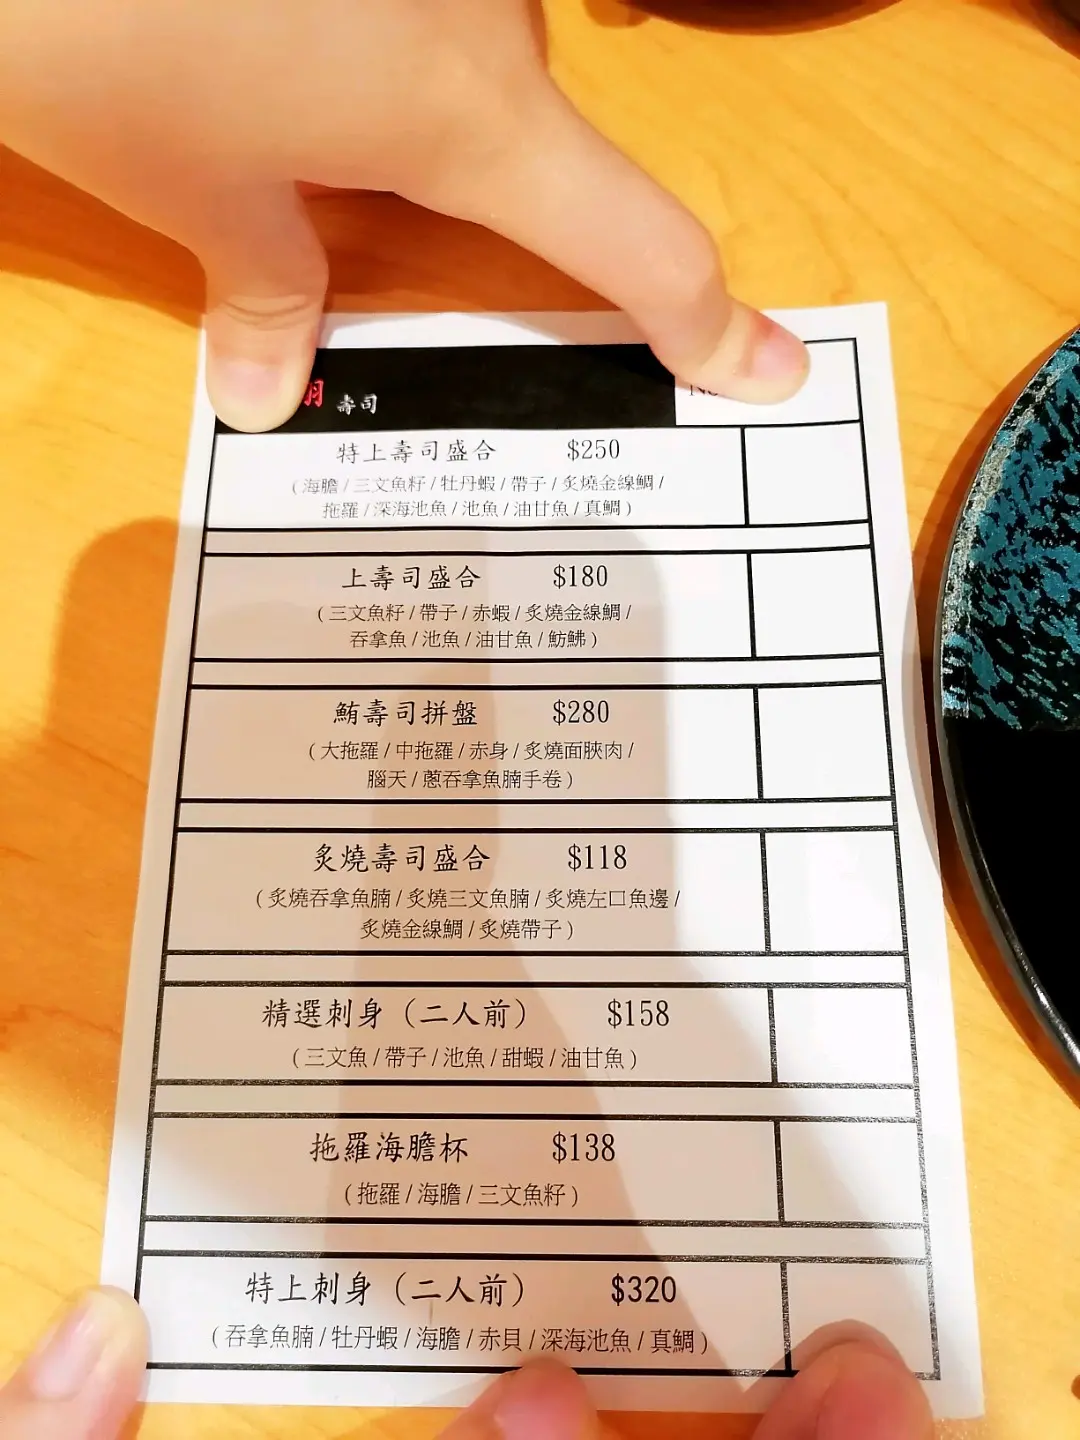 壽司
特上壽司盛合 $250
(海膽/三文魚籽/牡丹蝦/帶子/炙燒金線鯛/
拖羅/深海池魚/池魚/油甘魚/真鯛)
上壽司盛合 $180
(三文魚籽/帶子/赤蝦/炙燒金線鯛/
吞拿魚/池魚/油甘魚/魴鮄)
鮪壽司拼盤 $280
(大拖羅/中拖羅/赤身/炙燒面脥肉/
腦天/蔥吞拿魚腩手卷)
炙燒壽司盛合 $118
(炙燒吞拿魚腩/炙燒三文魚腩/炙燒左口魚邊/
炙燒金線鯛/炙燒帶子)
精選刺身(二人前) $158
(三文魚/帶子/池魚/甜蝦/油甘魚)
拖羅海膽杯 $138
(拖羅/海膽/三文魚籽)
特上刺身(二人前) $320
(吞拿魚腩/牡丹蝦/海膽/赤貝/深海池魚/真鯛)